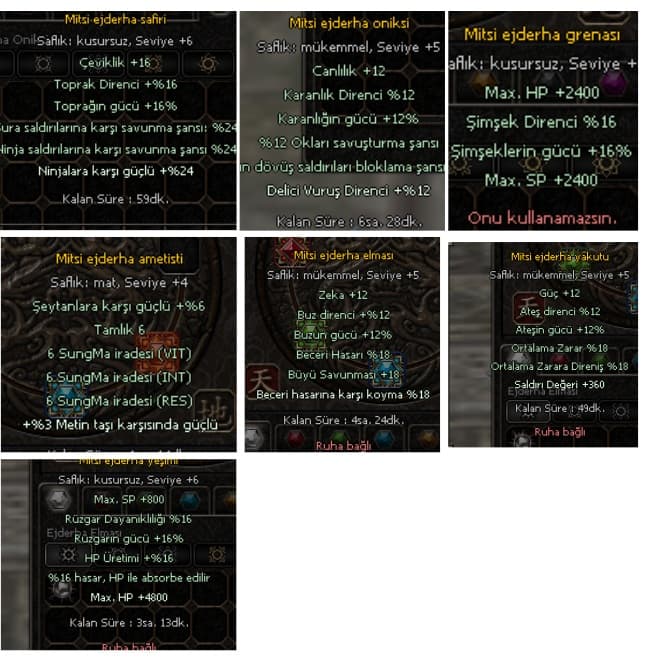 Mitsi ejderha safiri
Saflık: kusursuz, Seviye +6
Çeviklik +16
Toprak Direnci +%16
Toprağın gücü +16%
ura saldırılarına karşı savunma şansı: %24
Ninja saldırılarına karşı savunma şansı: %24
Ninjalara karşı güçlü +%24
Kalan Süre : 59dk.
Mitsi ejderha oniksi
Saflık: mükemmel, Seviye +5
Canlılık +12
Karanlık Direnci %12
Karanlığın gücü +12%
%12 Okları savuşturma şansı
ın dövüş saldırıları bloklama şansı
Delici Vuruş Direnci +%12
Kalan Süre : 6sa. 28dk.
Mitsi ejderha grenası
aflık: kusursuz, Seviye +
Max. HP +2400
Şimşek Direnci %16
Şimşeklerin gücü +16%
Max. SP +2400
Onu kullanamazsın.
Mitsi ejderha ametisti
Saflık: mat, Seviye +4
Şeytanlara karşı güçlü +%6
Tamlık 6
6 SungMa iradesi (VIT)
6 SungMa iradesi (INT)
6 SungMa iradesi (RES)
+%3 Metin taşı karşısında güçlü
Mitsi ejderha elması
Saflık: mükemmel, Seviye +5
Zeka +12
Buz direnci +%12
Buzun gücü +12%
Beceri Hasarı %18
Büyü Savunması +18
Beceri hasarına karşı koyma %18
Kalan Süre : 4sa. 24dk.
Ruha bağlı
Mitsi ejderha yakutu
Saflık: mükemmel, Seviye +5
Güç +12
Ateş direnci %12
Ateşin gücü +12%
Ortalama Zarar %18
Ortalama Zarara Direniş %18
Saldırı Değeri +360
Ejderha Elması
Kalan Süre : 49dk.
Ruha bağlı
Mitsi ejderha yeşimi
Saflık: kusursuz, Seviye +6
Max. SP +800
Rüzgar Dayanıklılığı %16
Ejderha Elması
Rüzgarın gücü +16%
HP Üretimi +%16
%16 hasar, HP ile absorbe edilir
Max. HP +4800
Kalan Süre : 3sa. 13dk.
Ruha bağlı